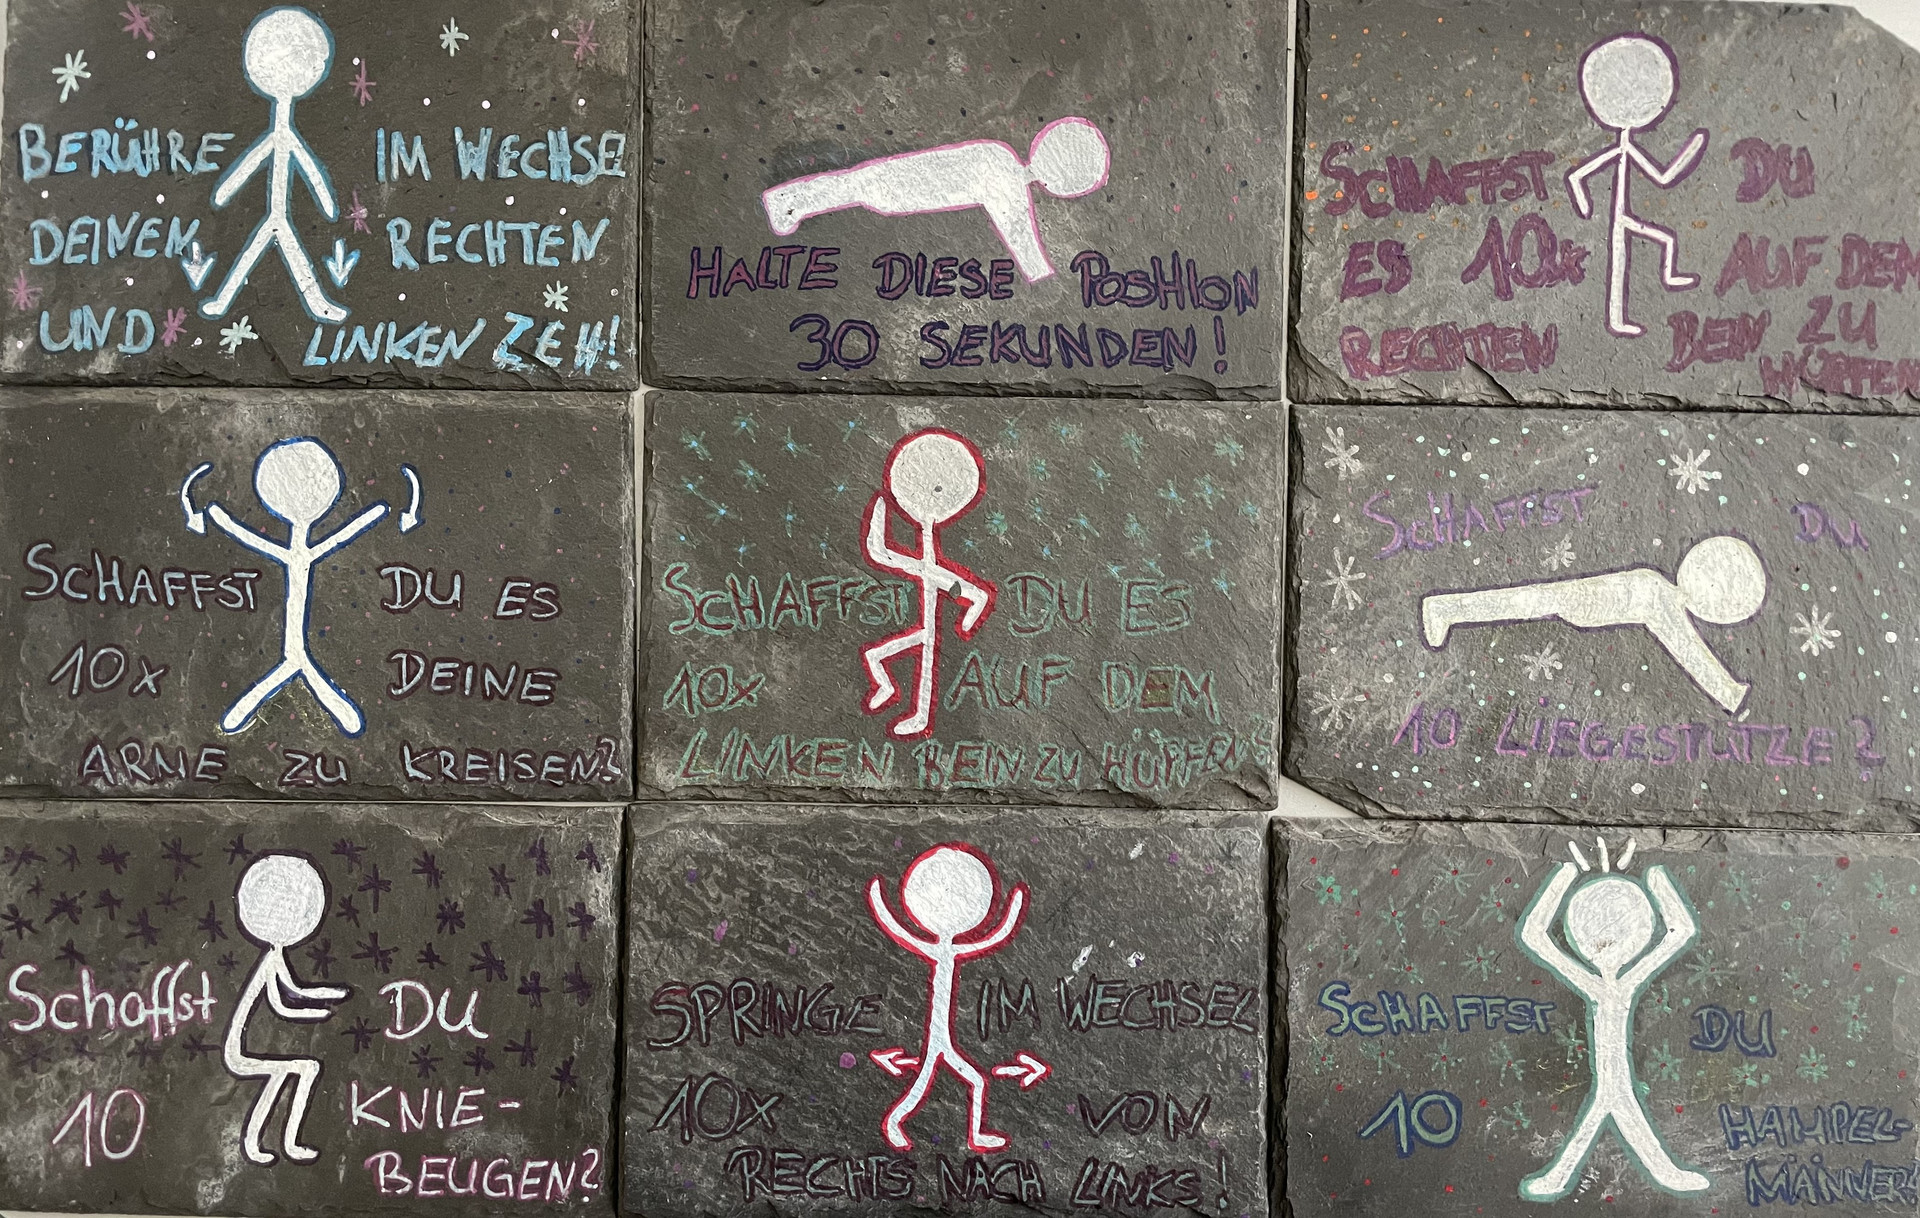 BERÜHRE IM WECHSEL
DEINEN RECHTEN
UND LINKEN ZEH!
HALTE DIESE POSITION
30 SEKUNDEN!
SCHAFFST DU
ES 10x AUF DEM
RECHTEN BEIN ZU
HÜPFEN
SCHAFFST DU ES
10x DEINE
ARME ZU KREISEN?
SCHAFFST DU ES
10x AUF DEM
LINKEN BEIN ZU HÜPFEN?
SCHAFFST DU
10 LIEGESTÜTZE?
Schaffst DU
10 KNIE-
BEUGEN?
SPRINGE IM WECHSEL
10x VON
RECHTS NACH LINKS!
SCHAFFST DU
10 HAMPEL-
MÄNNER?